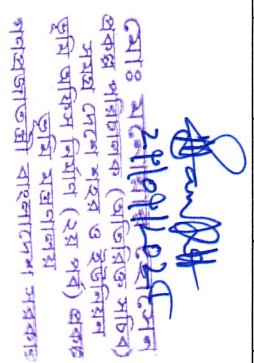 মোঃ হোসেন
প্রকল্প পরিচালক (অতিরিক্ত সচিব)
সমগ্র দেশে শহর ও ইউনিয়ন
ভূমি অফিস নির্মাণ (২য় পর্ব) প্রকল্প
ভূমি মন্ত্রণালয়
গণপ্রজাতন্ত্রী বাংলাদেশ সরকার